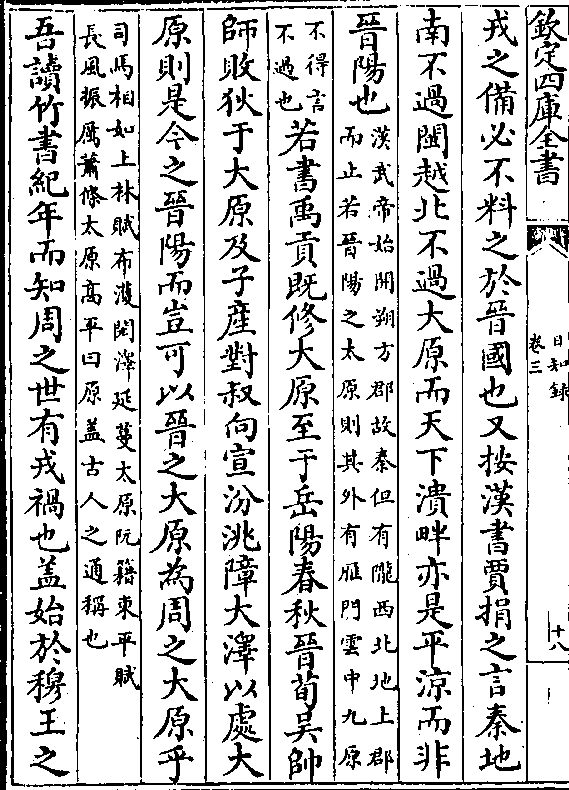 欽定四庫全書
日知錄
卷三
十八
戎之備必不料之於晉國也又按漢書賈捐之言秦地
南不過閩越北不過大原而天下潰畔亦是平涼而非
晉陽也漢武帝始開朔方郡故秦但有隴西北地上郡
而止若晉陽之太原則其外有雁門雲中九原
不得言
不過也若書禹貢既修大原至于岳陽春秋晉荀吳帥
師敗狄于大原及子產對叔向宣汾洮障大澤以處大
原則是今之晉陽而豈可以晉之大原為周之大原乎
司馬相如上林賦布濩閎澤延蔓太原阮籍東平賦
長風振厲蕭條太原高平曰原蓋古人之通稱也
吾讀竹書紀年而知周之世有戎禍也蓋始於穆王之